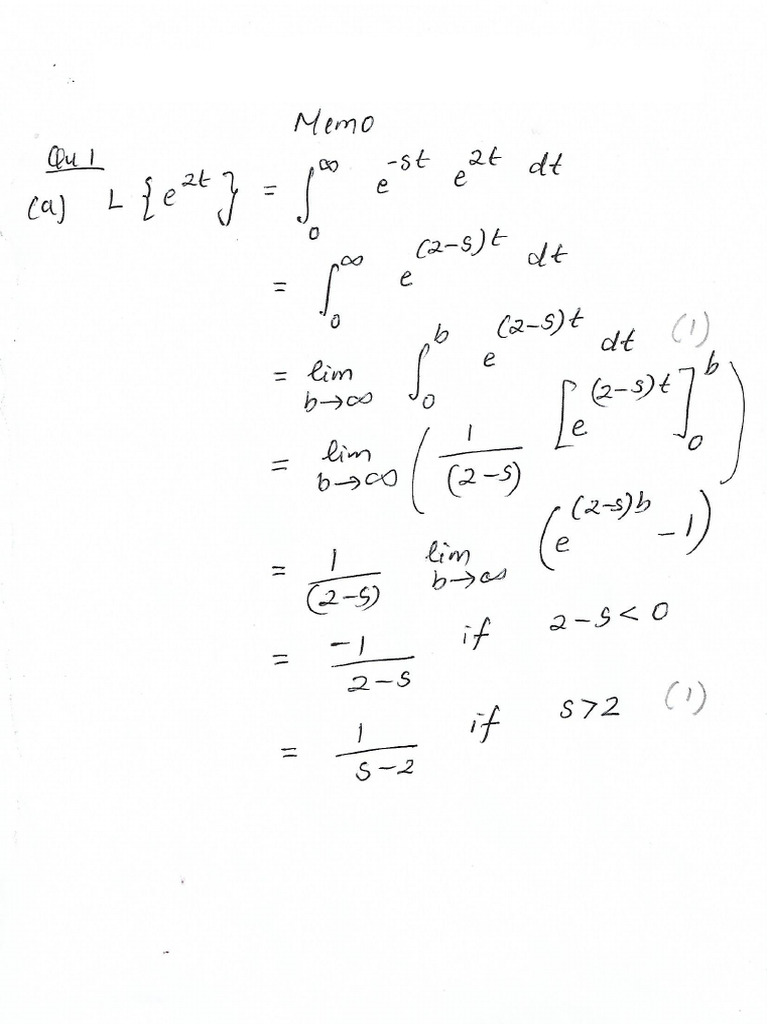 Memo
Qu 1
(a) L {e^{2t}} = ∫_0^∞ e^{-st} e^{2t} dt
= ∫_0^∞ e^{(2-s)t} dt
= lim_{b→∞} ∫_0^b e^{(2-s)t} dt (1)
= lim_{b→∞} ( \frac{1}{(2-s)} [e^{(2-s)t}]_0^b )
= \frac{1}{(2-s)} lim_{b→∞} (e^{(2-s)b} - 1)
= \frac{-1}{2-s} if 2-s < 0
= \frac{1}{s-2} if s>2 (1)